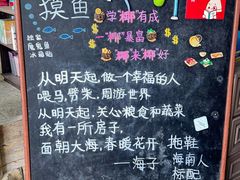 摸鱼
学椰有成
一椰暴富
椰来椰好
从明天起,做一个幸福的人
喂马,劈柴,周游世界
从明天起,关心粮食和蔬菜
我有一所房子,
面朝大海,春暖花开
——海子
拖鞋
海南人
标配